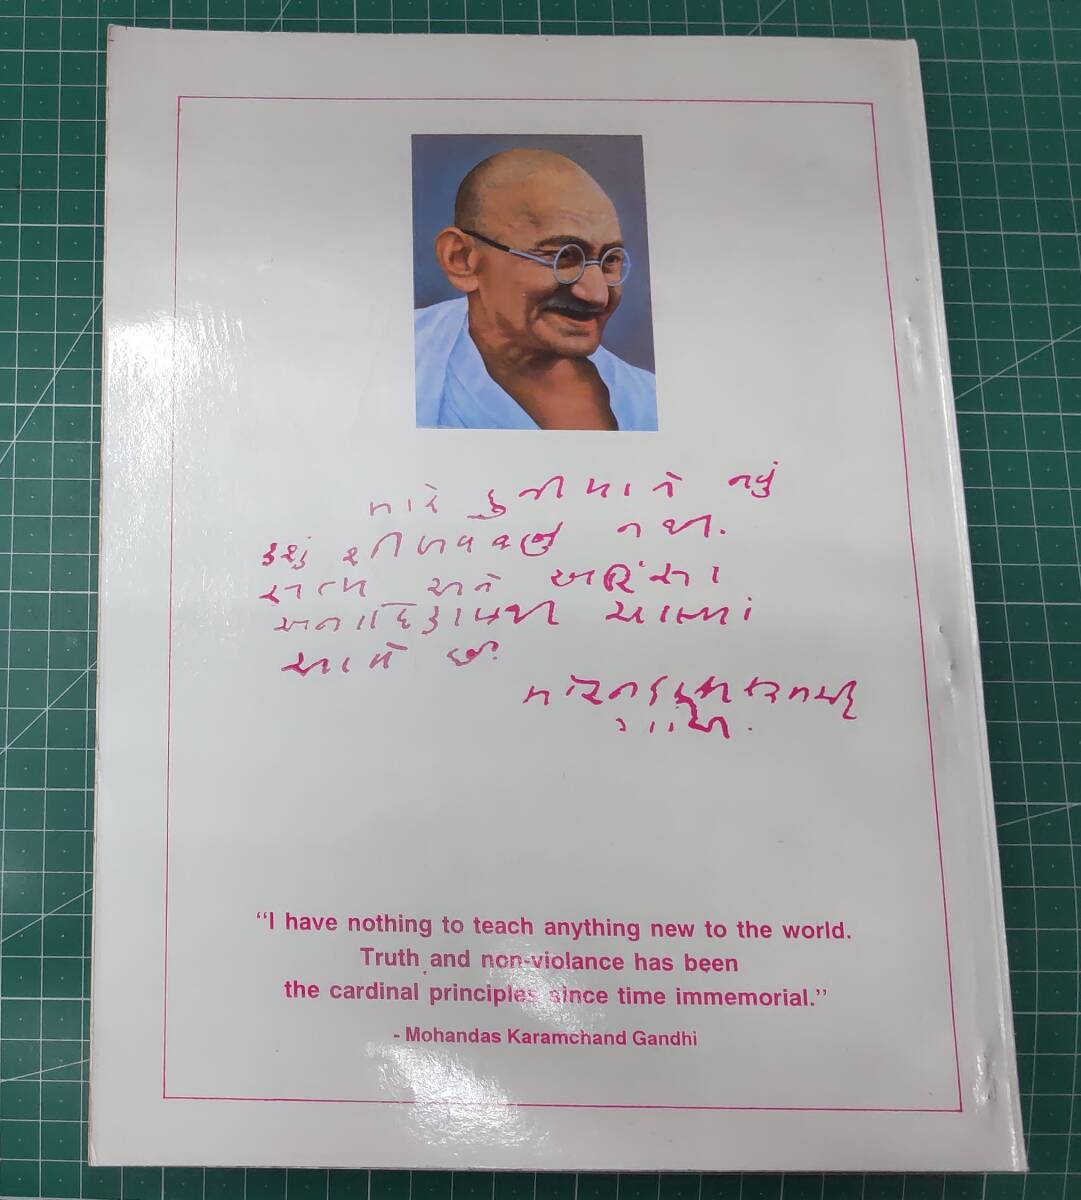 મારે દુનીયાને નવું
કશું શીખવવાનું નથી.
સત્ય અને અહિંસા
અનાદિકાળથી ચાલ્યાં
આવે છે.
મોહનદાસ કરમચંદ
ગાંધી.
“I have nothing to teach anything new to the world.
Truth and non-violance has been
the cardinal principles since time immemorial.”
- Mohandas Karamchand Gandhi